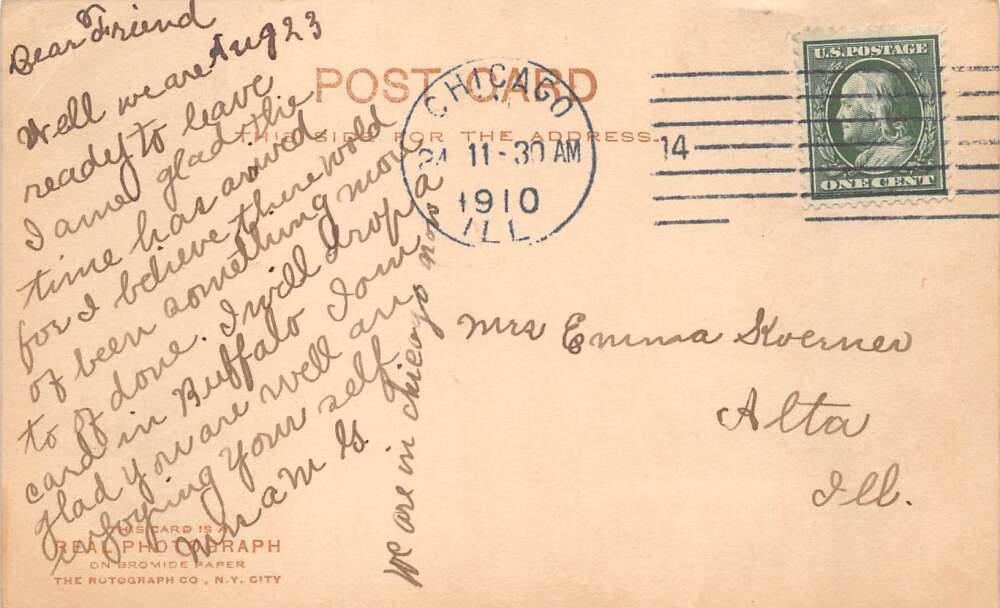 Dear Friend
Aug 23
Well we are
ready to leave
I ame glad the
time has arived
for I believe there wold
of been something more
to of done. I will drop a
card in Buffalo I am
glad you are well an
injoying your self
Mrs A M G.
We are in Chicago now
POST CARD
THIS SIDE FOR THE ADDRESS.
CHICAGO
24 11-30 AM
1910
ILL.
14
U.S. POSTAGE
ONE CENT
Mrs Emma Koerner
Alta
Ill.
THIS CARD IS A
REAL PHOTOGRAPH
ON BROMIDE PAPER
THE ROTOGRAPH CO., N.Y. CITY